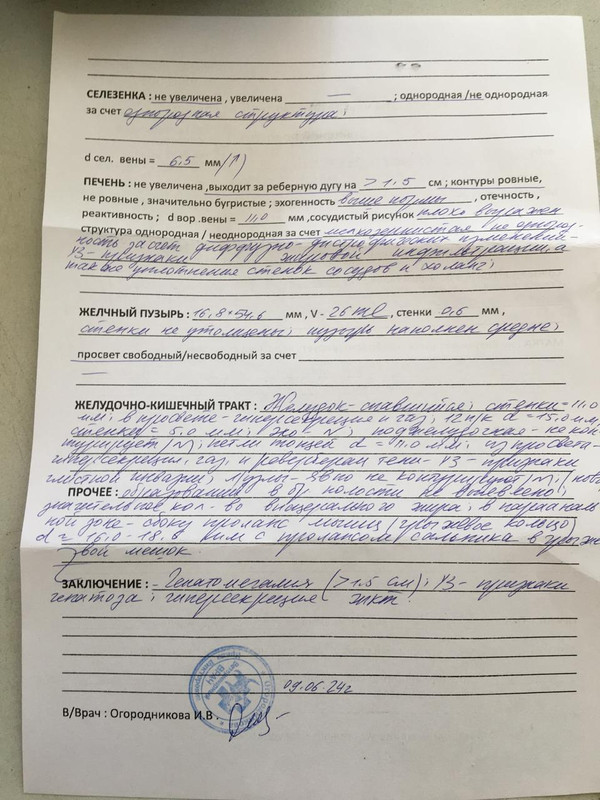 СЕЛЕЗЕНКА : не увеличена , увеличена — ; однородная /не однородная
за счет однородная структура;
d сел. вены = 6,5 мм/N)
ПЕЧЕНЬ : не увеличена ,выходит за реберную дугу на >1,5 см ; контуры ровные,
не ровные , значительно бугристые ; эхогенность выше нормы , отечность ,
реактивность ; d вор .вены = 11,0 мм ,сосудистый рисунок плохо выражен
структура однородная / неоднородная за счет мелкозернистая не однород-
ность за счет диффузно-дистрофических изменений-
УЗ-признаки жировой инфильтрации, а
также уплотнение стенок сосудов и холанг;
ЖЕЛЧНЫЙ ПУЗЫРЬ : 16,8*54,6 мм , V - 26 ml , стенки 0,6 мм ,
стенки не утолщены; пузырь наполнен средне;
просвет свободный/несвободный за счет
—
ЖЕЛУДОЧНО-КИШЕЧНЫЙ ТРАКТ : Желудок-спавшийся; стенки=11,0
мм; в просвете-гиперсекреция и газ; 12 п/к d =15,0 мм,
стенки= 5,0 мм; эхо-N; поджелудочная-не кон
турирует/N; петли тощей d = 11,0 мм; из просвета-
гиперсекреция, газ, и реверберации тени- УЗ-признаки
л/узлы-явно не контурируют/N;
ПРОЧЕЕ : образований в бр полости не выявлено;
значительное кол-во висцерального жира; в параналь
ной зоне-сбоку пролапс мышц (грыжевое кольцо)
d = 16,0-18,0 мм с пролапсом сальника в грыже
вой мешок.
ЗАКЛЮЧЕНИЕ : Гепатомегалия (>1.5 см); УЗ-признаки
гепатоза; гиперсекреция жкт.
09.06.24г
В/Врач : Огородникова И.В